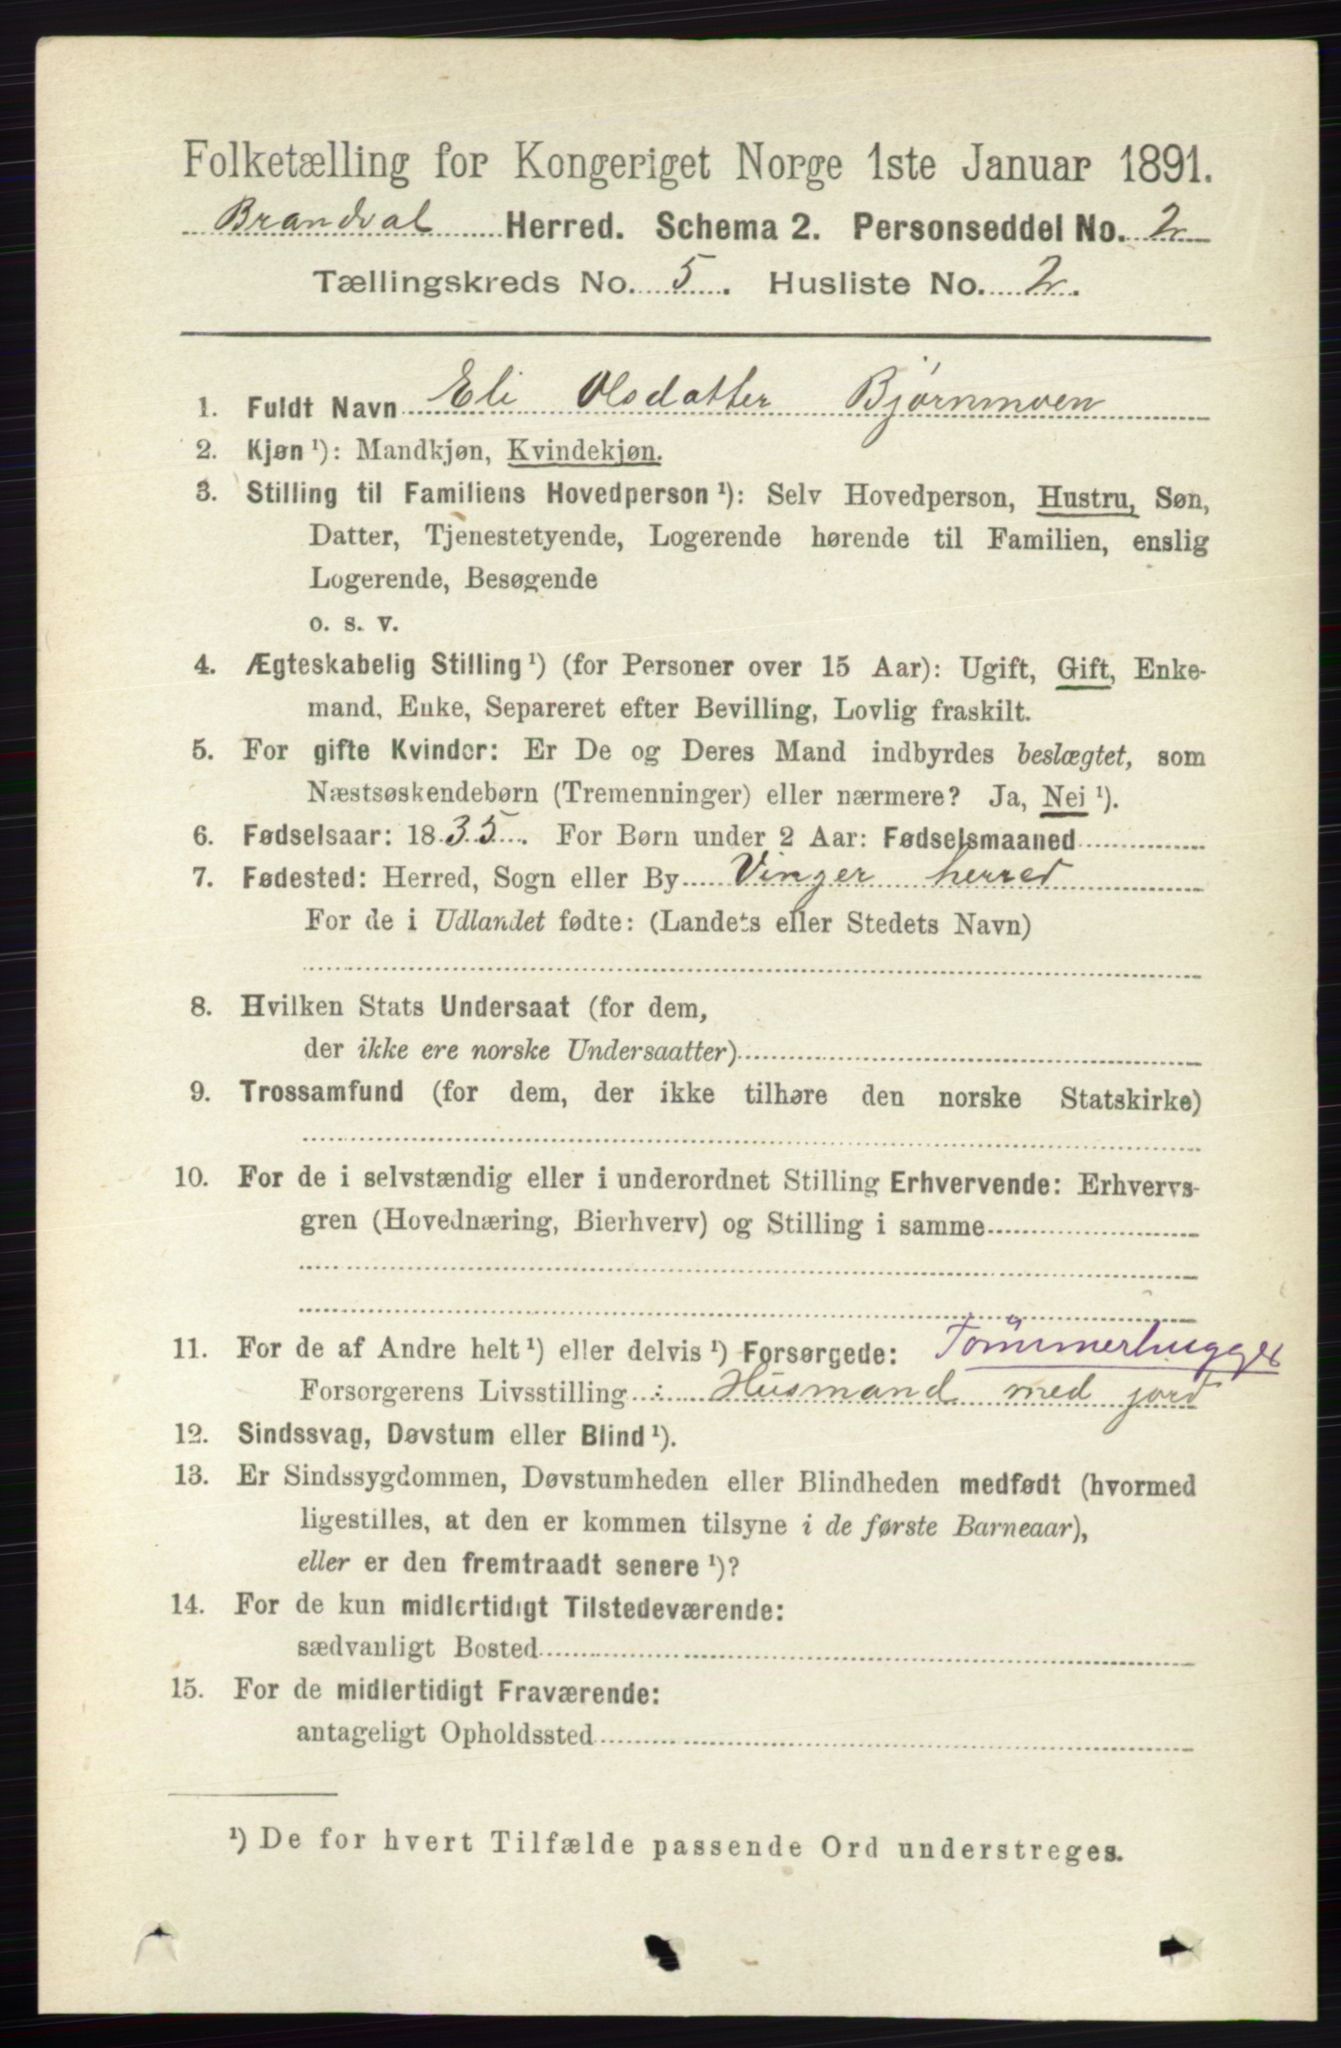 Folketælling for Kongeriget Norge 1ste Januar 1891.
Brandval Herred. Schema 2. Personseddel No. 2
Tællingskreds No. 5. Husliste No. 2.
1. Fuldt Navn Eli Olsdatter Bjørnmoen
2. Kjøn ¹): Mandkjøn, Kvindekjøn.
3. Stilling til Familiens Hovedperson ¹): Selv Hovedperson, Hustru, Søn,
Datter, Tjenestetyende, Logerende hørende til Familien, enslig
Logerende, Besøgende
o. s. v.
4. Ægteskabelig Stilling ¹) (for Personer over 15 Aar): Ugift, Gift, Enke-
mand, Enke, Separeret efter Bevilling, Lovlig fraskilt.
5. For gifte Kvinder: Er De og Deres Mand indbyrdes beslægtet, som
Næstsøskendebørn (Tremenninger) eller nærmere? Ja, Nei ¹).
6. Fødselsaar: 1835. For Børn under 2 Aar: Fødselsmaaned
7. Fødested: Herred, Sogn eller By Vinger herred
For de i Udlandet fødte: (Landets eller Stedets Navn)
8. Hvilken Stats Undersaat (for dem,
der ikke ere norske Undersaatter)
9. Trossamfund (for dem, der ikke tilhøre den norske Statskirke)
10. For de i selvstændig eller i underordnet Stilling Erhvervende: Erhvervs-
gren (Hovednæring, Bierhverv) og Stilling i samme
11. For de af Andre helt ¹) eller delvis ¹) Forsørgede: Tømmerhugger
Forsørgerens Livsstilling : Husmand med jord
12. Sindssvag, Døvstum eller Blind ¹).
13. Er Sindssygdommen, Døvstumheden eller Blindheden medfødt (hvormed
ligestilles, at den er kommen tilsyne i de første Barneaar),
eller er den fremtraadt senere ¹)?
14. For de kun midlertidigt Tilstedeværende:
sædvanligt Bosted
15. For de midlertidigt Fraværende:
antageligt Opholdssted
¹) De for hvert Tilfælde passende Ord understreges.